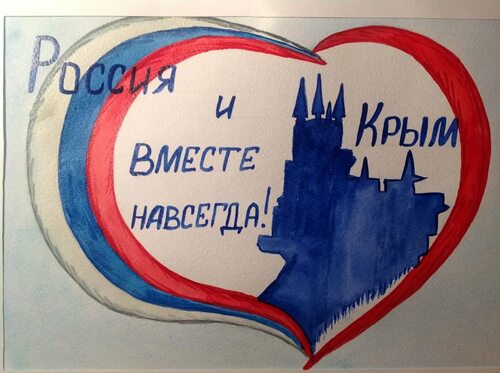 Россия
и
Крым
вместе
навсегда!